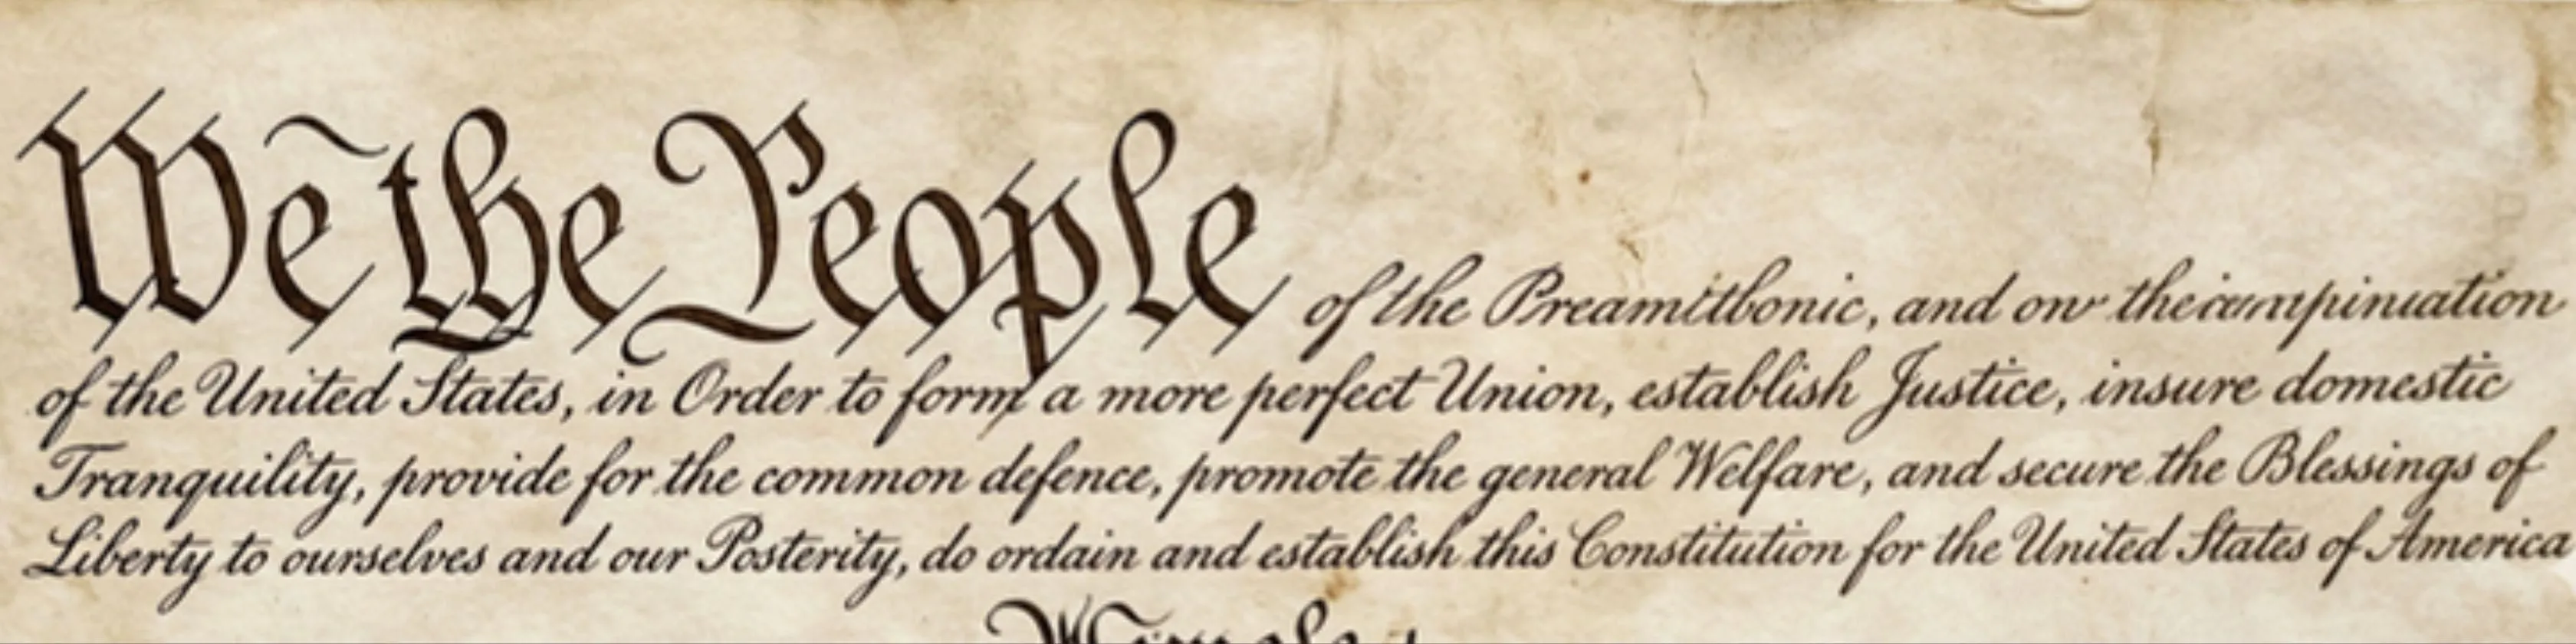 We the People of the Preamitbonic, and our the
of the United States, in Order to form a more perfect Union, establish Justice, insure domestic
Tranquility, provide for the common defence, promote the general Welfare, and secure the Blessings of
Liberty to ourselves and our Posterity, do ordain and establish this Constitution for the United States of America